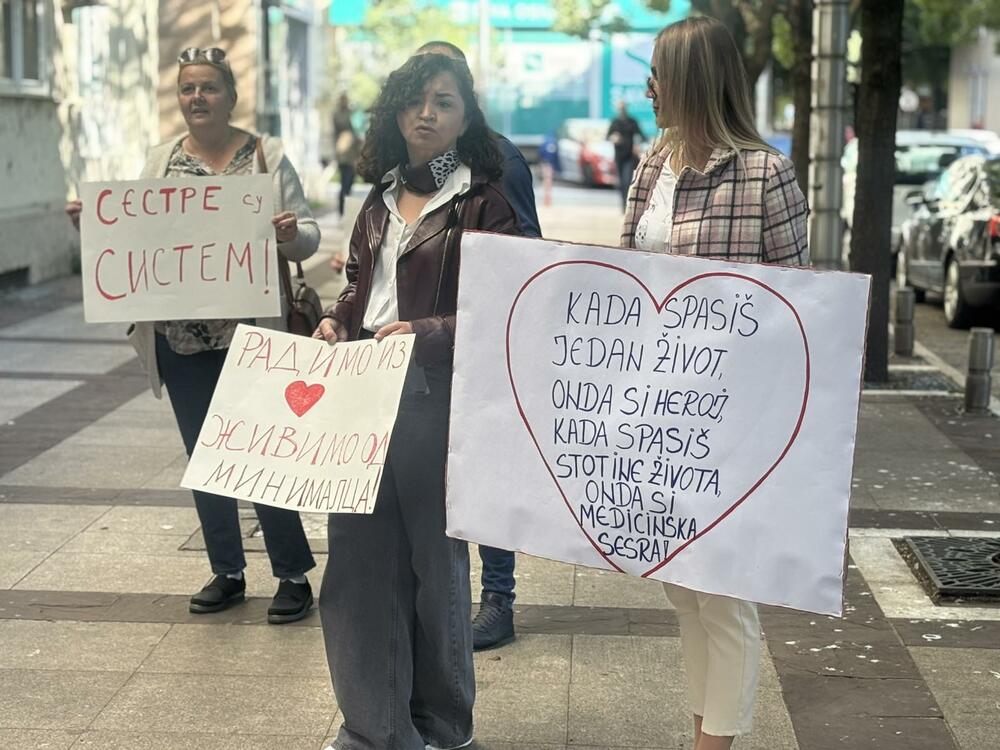 СЕСТРЕ су
СИСТЕМ!
РАДИМО ИЗ
ЖИВИМО ОД
МИНИМАЛЦА!
KADA SPASIŠ
JEDAN ŽIVOT,
ONDA SI HEROJ,
KADA SPASIŠ
STOTINE ŽIVOTA,
ONDA SI
MEDICINSKA
SESRA!